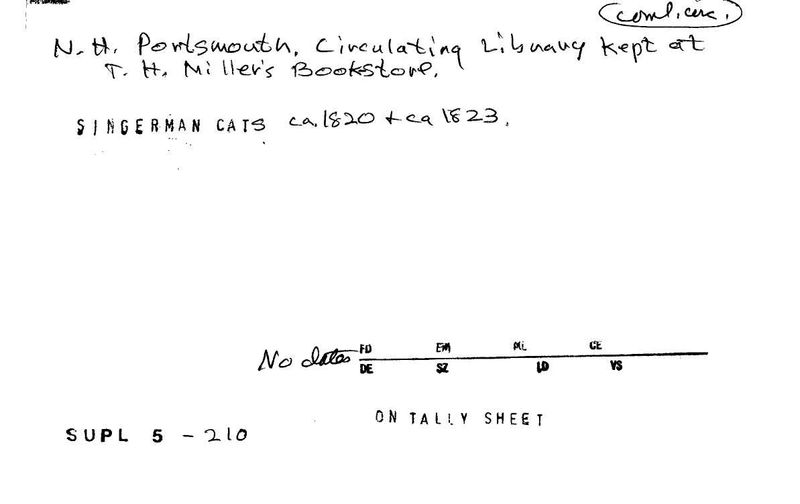 coml. circ.
N. H. Portsmouth, Circulating Library kept at
T. H. Miller's Bookstore.
SINGERMAN CATS ca. 1820 + ca 1823.
No dates FD EM ML CE
DE SZ LD VS
ON TALLY SHEET
SUPL 5 - 210